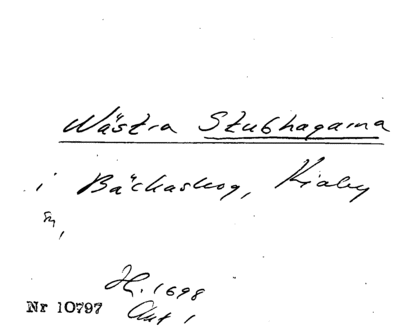 Wästra Stubhagarna
i Bäckaskog, Kiaby
sn,
H. 1698
Nr 10797 Akt 1